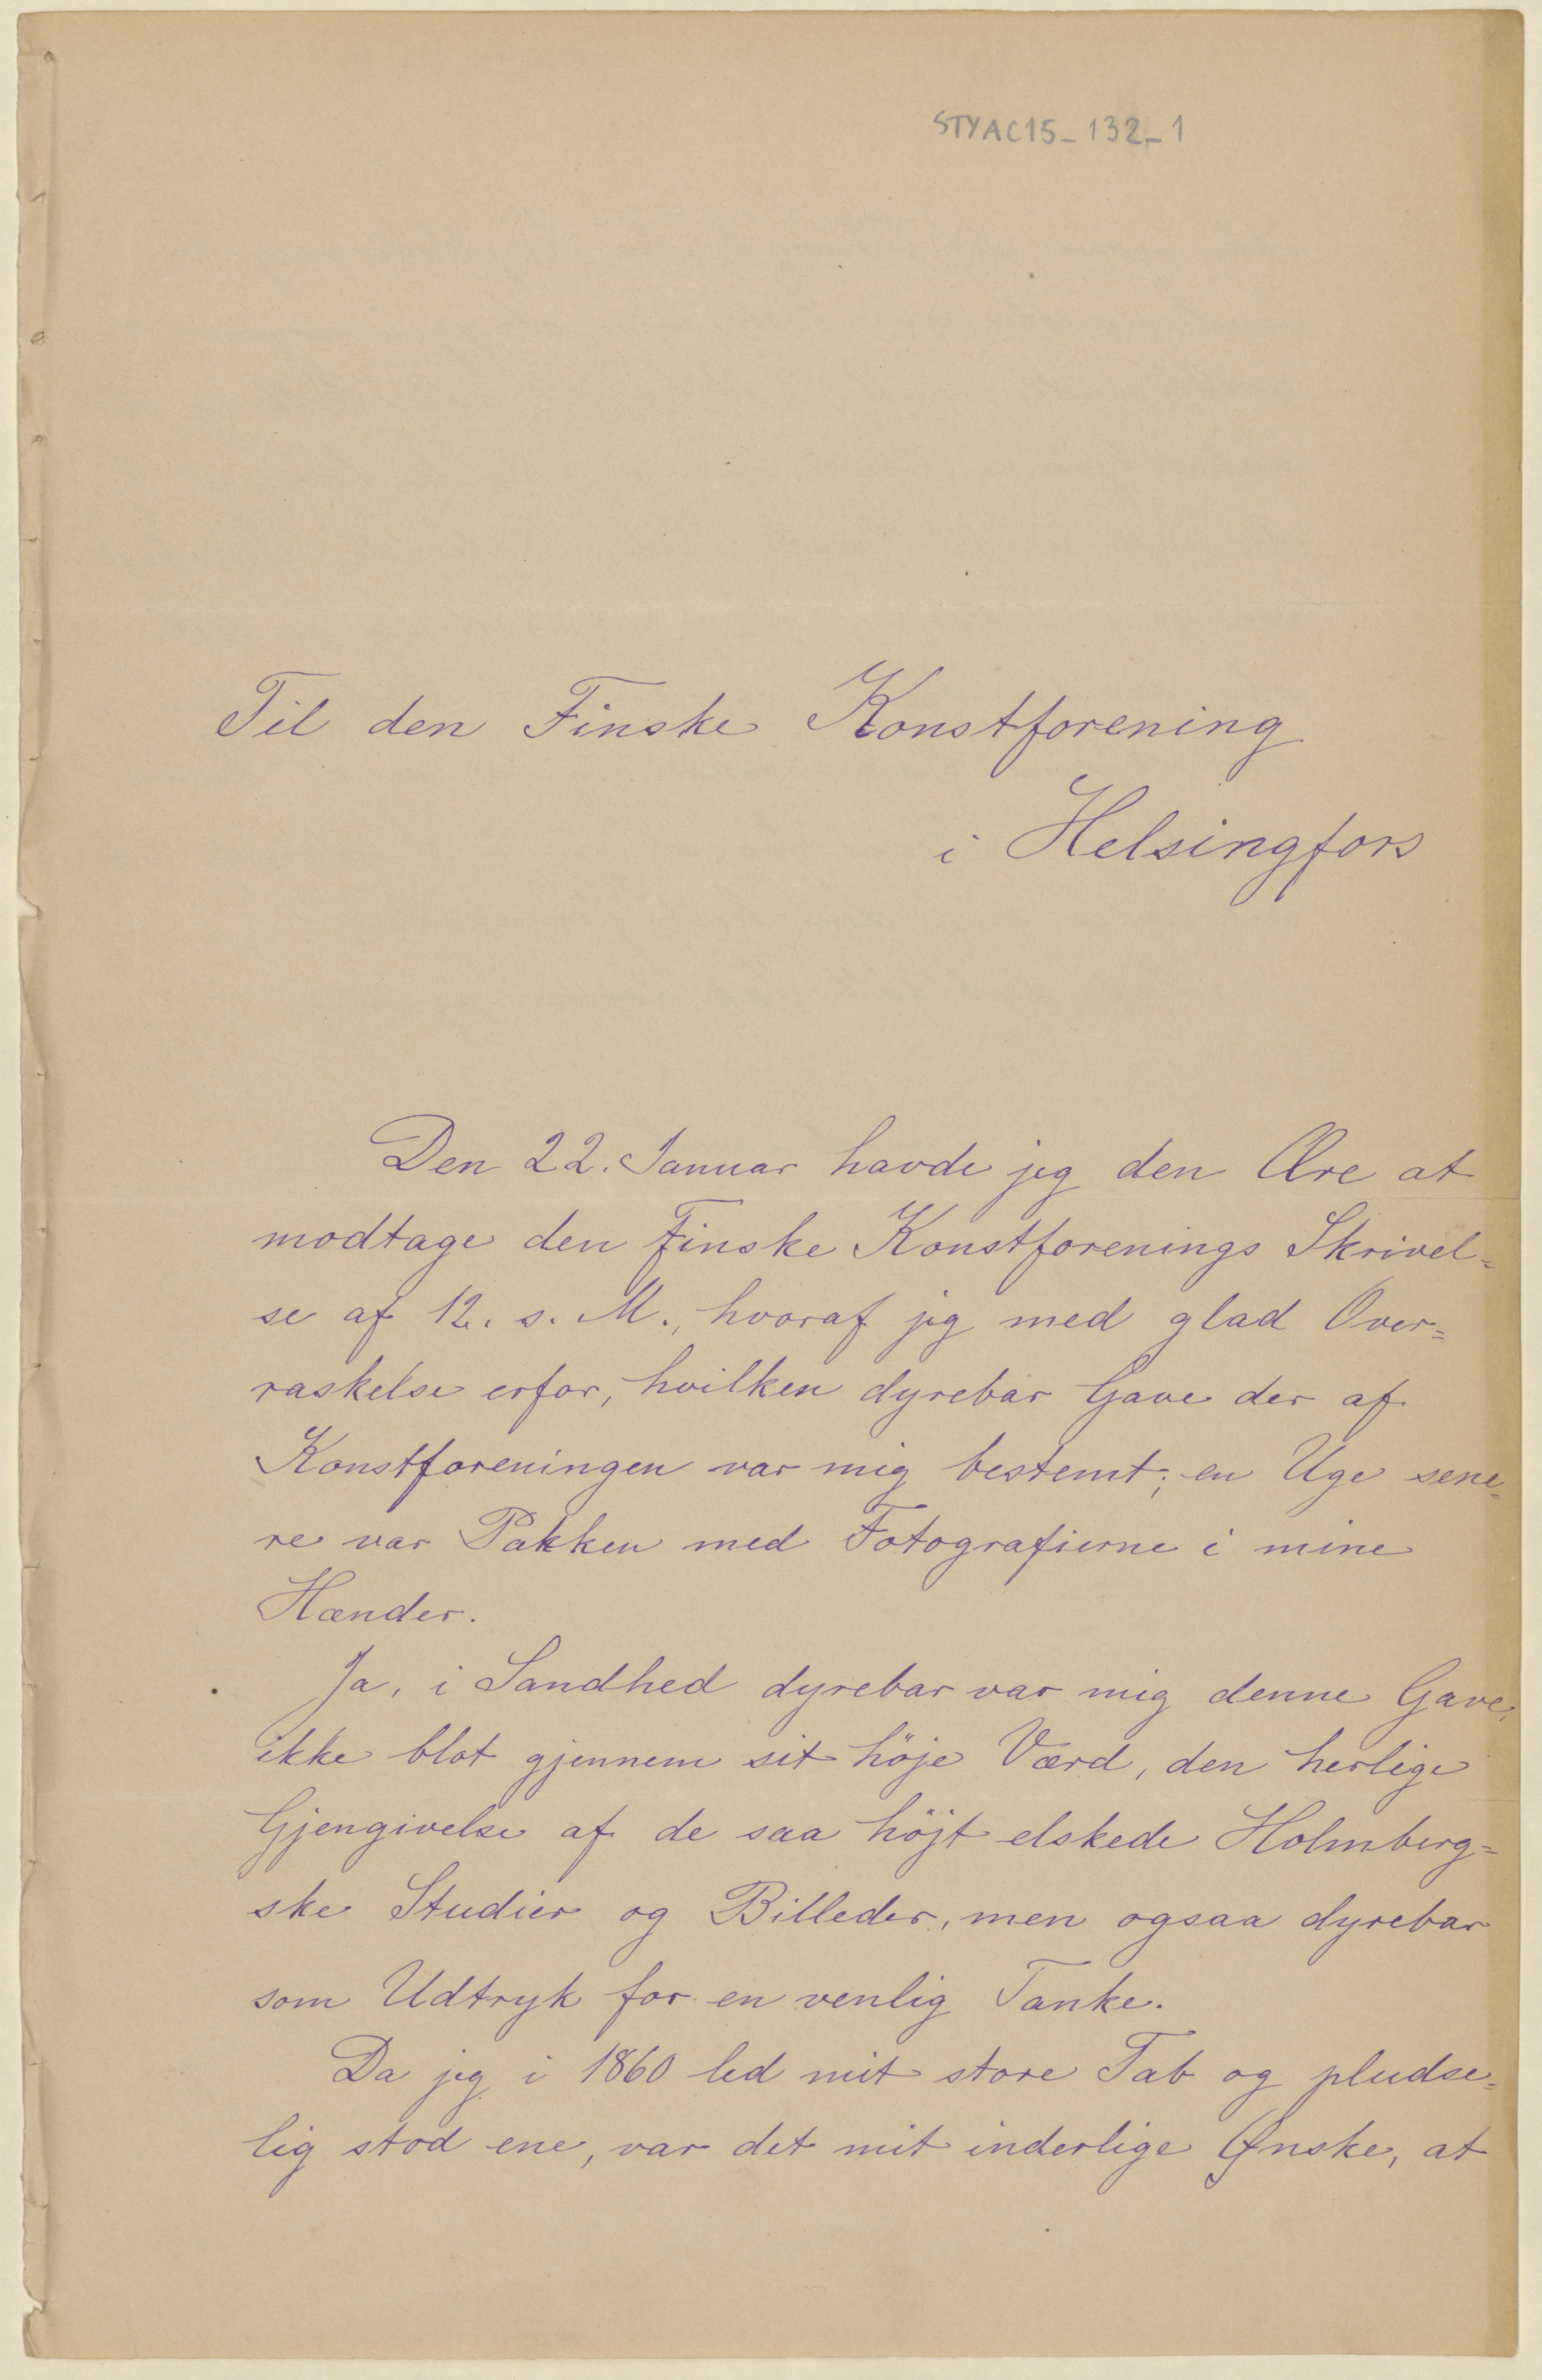 STYAC15_132_1
Til den Finske Konstforening
i Helsingfors
Den 22. Januar havde jeg den Ære at
modtage den Finske Konstforenings Skrivel=
se af 12. s. M., hvoraf jeg med glad Over=
raskelse erfor, hvilken dyrebar Gave der af
Konstforeningen var mig bestemt; en Uge sene=
re var Pakken med Fotografierne i mine
Hænder.
Ja, i Sandhed dyrebar var mig denne Gave,
ikke blot gjennem sit höje Værd, den herlige
Gjengivelse af de saa höjt elskede Holmberg=
ske Studier og Billeder, men ogsaa dyrebar
som Udtryk for en venlig Tanke.
Da jeg i 1860 led mit store Tab og pludse=
lig stod ene, var det mit inderlige Ønske, at